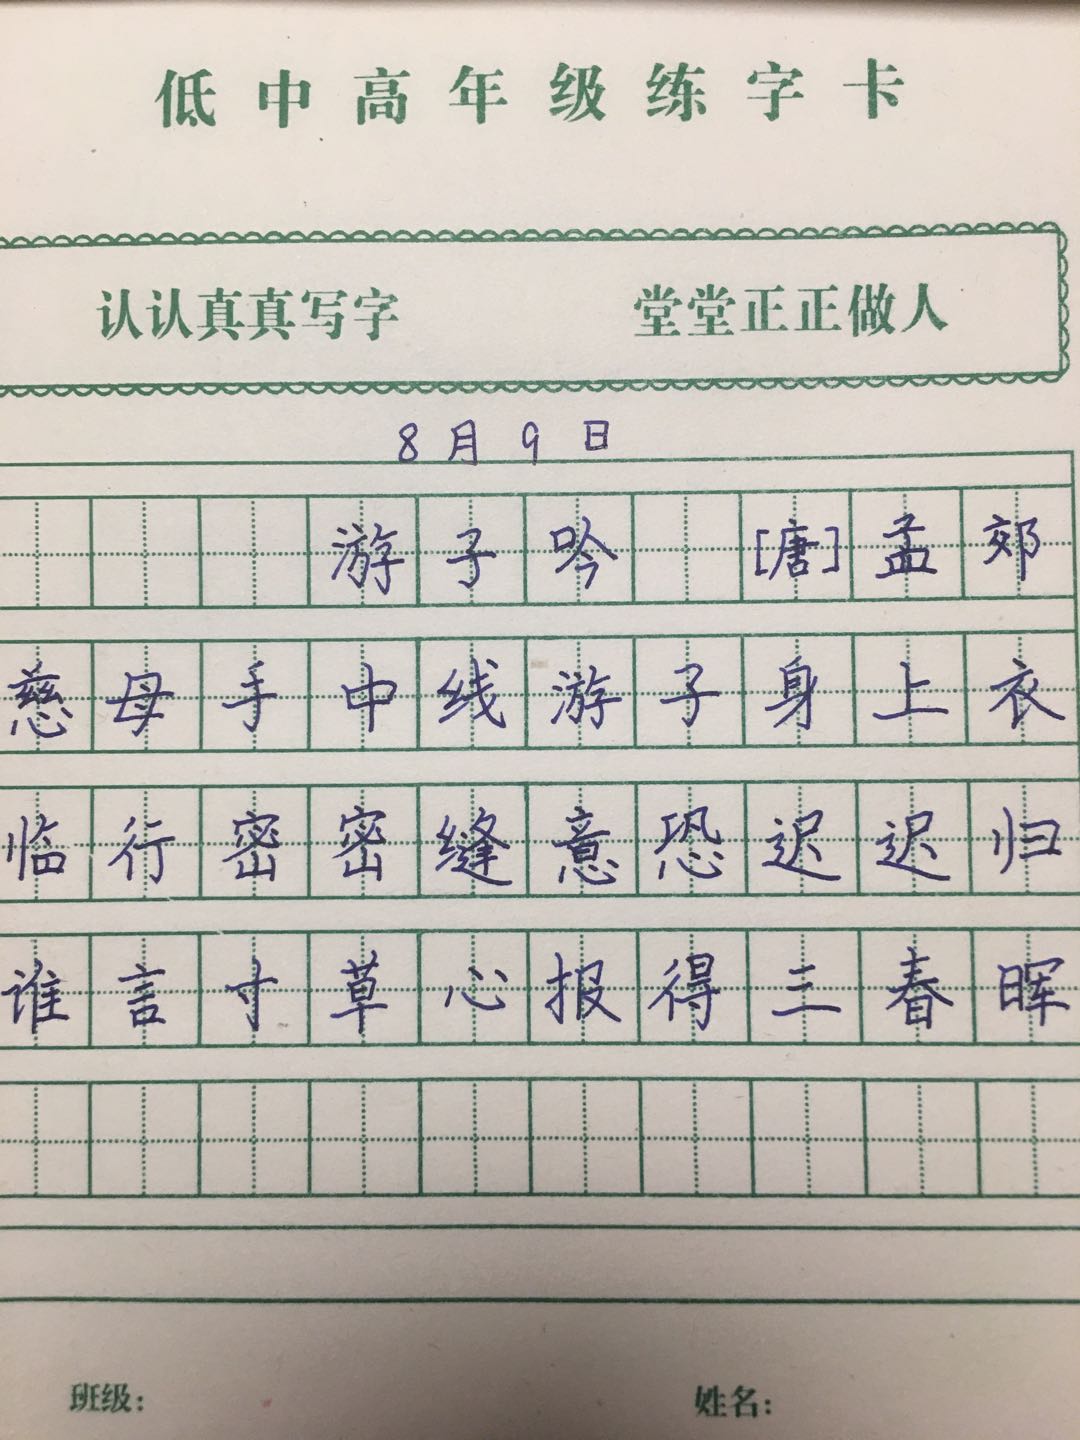 低中高年级练字卡
认认真真写字 堂堂正正做人
8月9日
游子吟 [唐]孟郊
慈母手中线游子身上衣
临行密密缝意恐迟迟归
谁言寸草心报得三春晖
班级: 姓名: